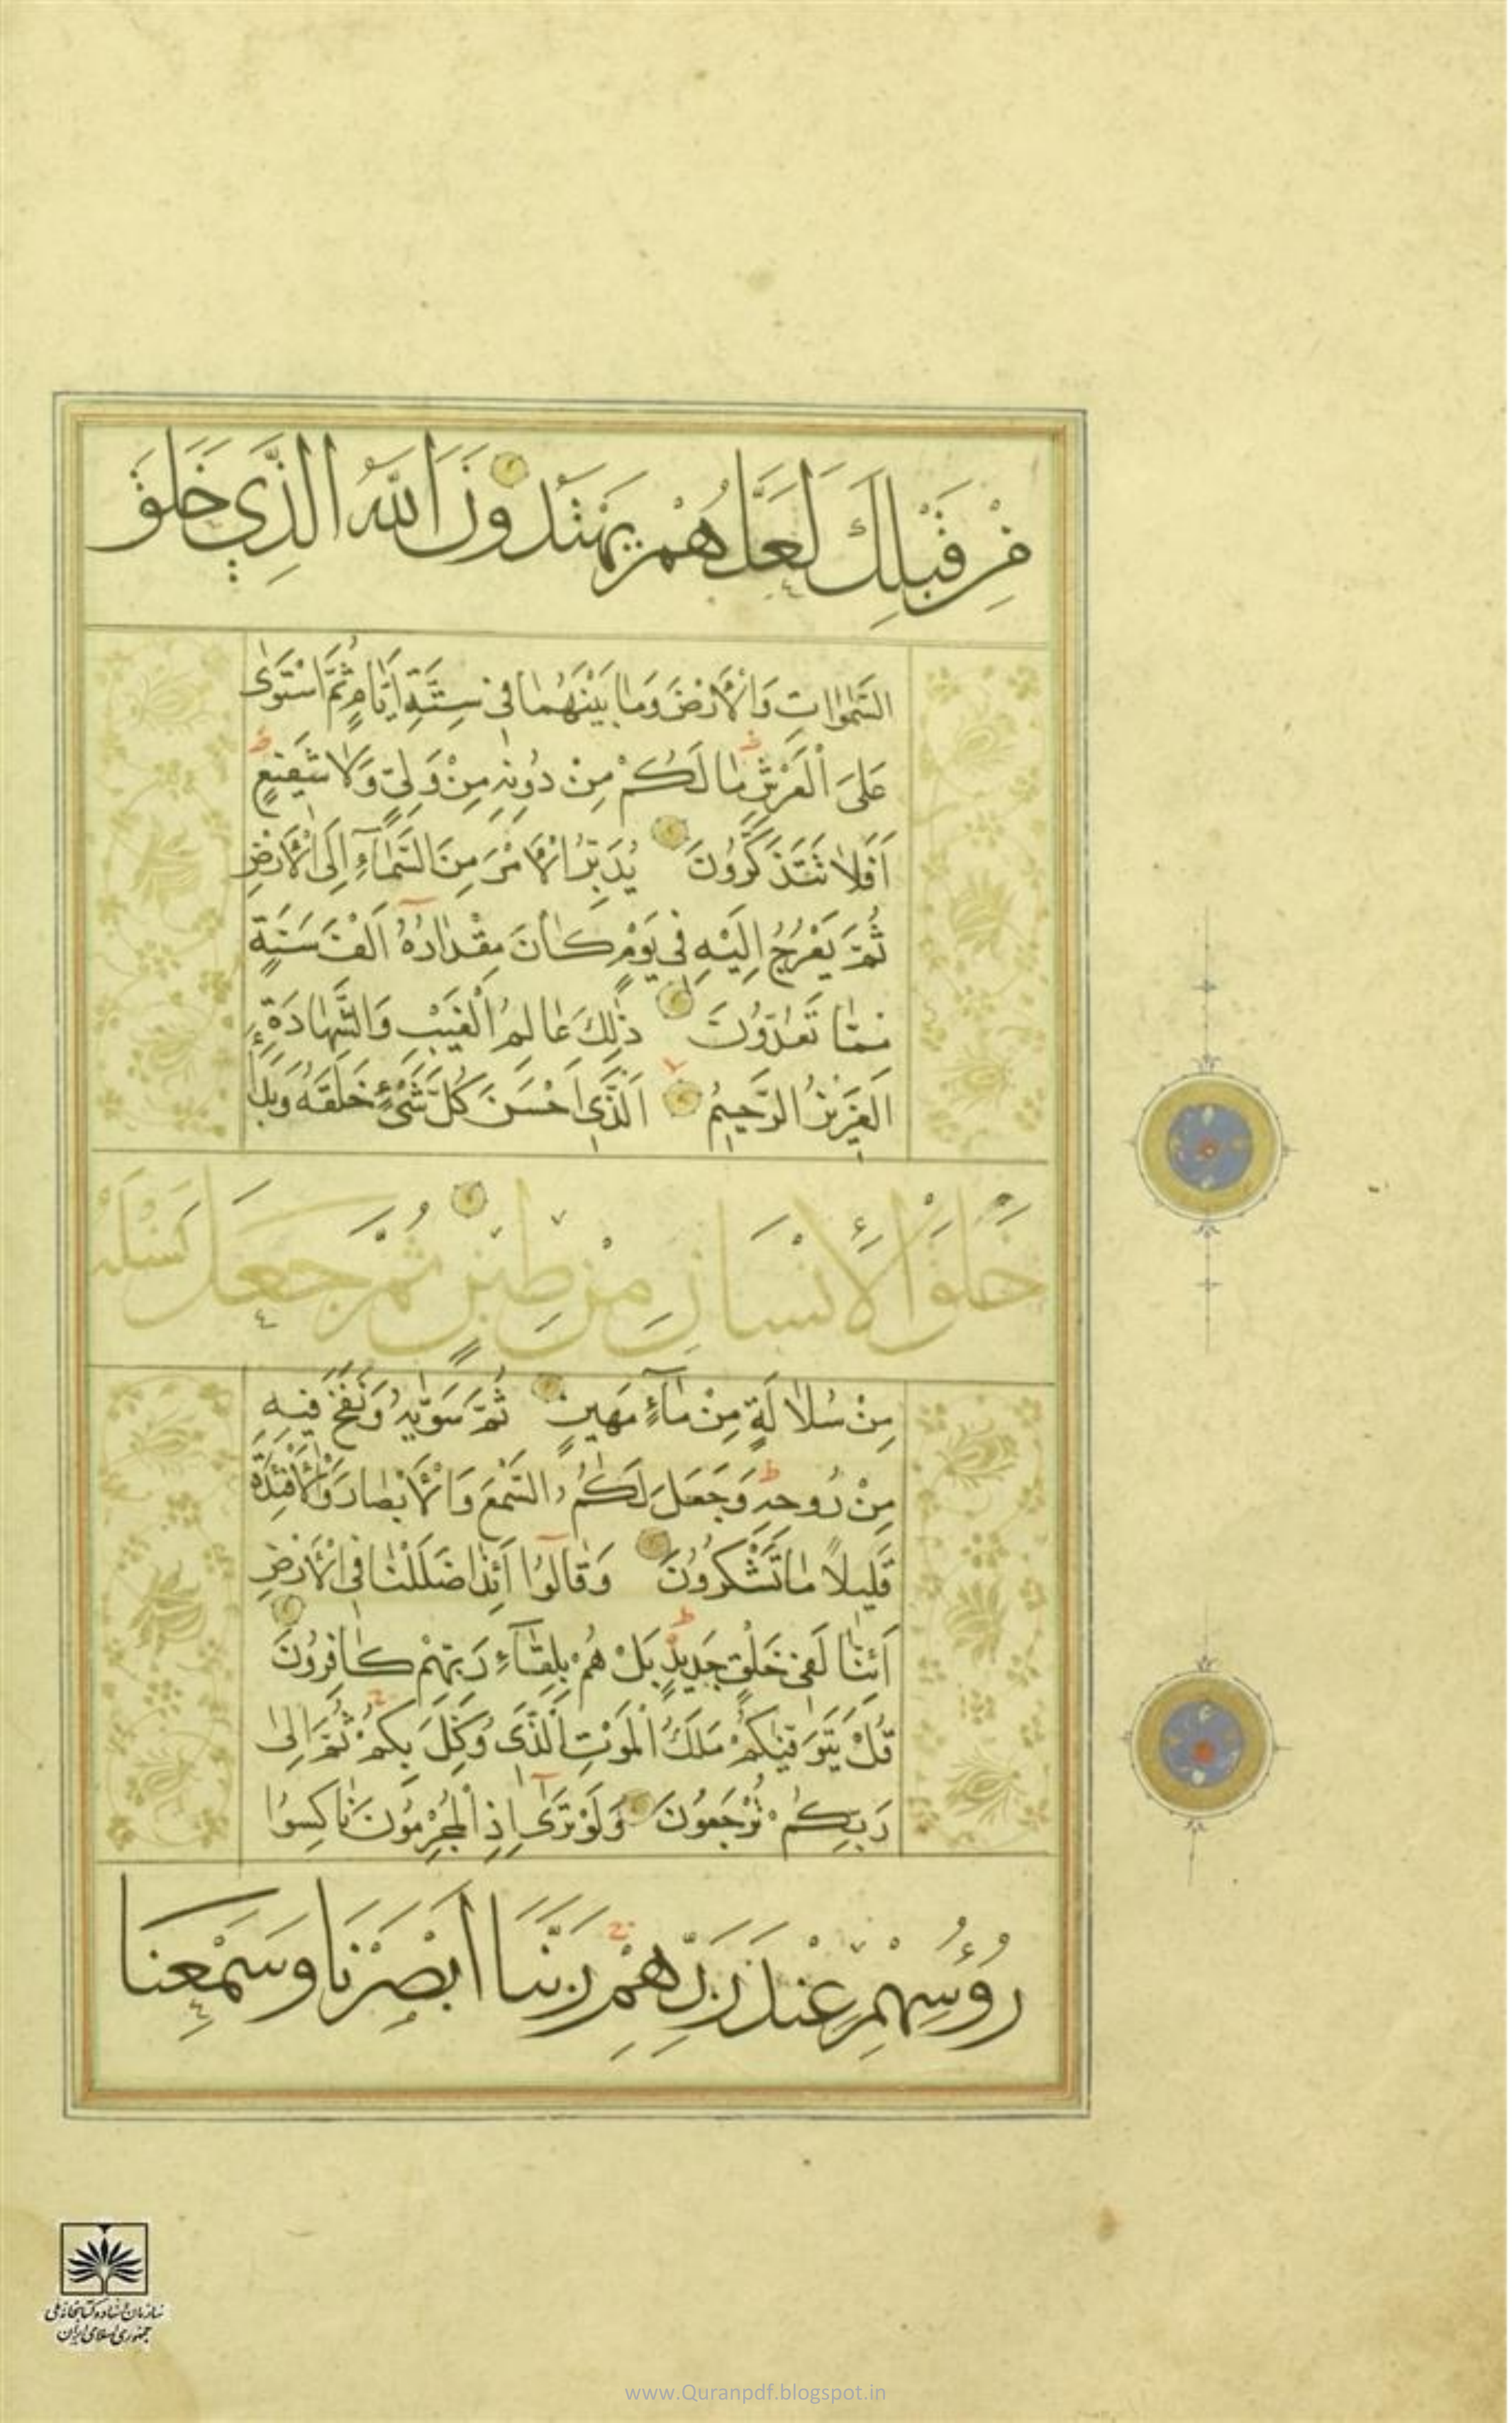 مِنْ قَبْلِكَ لَعَلَّهُمْ يَهْتَدُونَ اَللّٰهُ الَّذِي خَلَقَ
السَّمٰوٰاتِ وَالْاَرْضَ وَمٰا بَيْنَهُمٰا فِي سِتَّةِ اَيّٰامٍ ثُمَّ اسْتَوٰى
عَلَى الْعَرْشِ مٰا لَكُمْ مِنْ دُونِهِ مِنْ وَلِيٍّ وَلاٰ شَفِيعٍ
اَفَلاٰ تَتَذَكَّرُونَ يُدَبِّرُ الْاَمْرَ مِنَ السَّمٰآءِ اِلَى الْاَرْضِ
ثُمَّ يَعْرُجُ اِلَيْهِ فِي يَوْمٍ كٰانَ مِقْدٰارُهُٓ اَلْفَ سَنَةٍ
مِمّٰا تَعُدُّونَ ذٰلِكَ عٰالِمُ الْغَيْبِ وَالشَّهٰادَةِ
الْعَزِيزُ الرَّحِيمُ اَلَّذِي اَحْسَنَ كُلَّ شَيْءٍ خَلَقَهُ وَبَدَاَ
خَلْقَ الْاِنْسَانِ مِنْ طِينٍ ثُمَّ جَعَلَ نَسْلَهُ
مِنْ سُلاٰلَةٍ مِنْ مٰآءٍ مَهِينٍ ثُمَّ سَوّٰيهُ وَنَفَخَ فِيهِ
مِنْ رُوحِهِ وَجَعَلَ لَكُمُ السَّمْعَ وَالْاَبْصٰارَ وَالْاَفْئِدَةَ
قَلِيلاً مٰا تَشْكُرُونَ وَقٰالُوٓا اَئِذٰا ضَلَلْنٰا فِي الْاَرْضِ
اَئِنّٰا لَفِي خَلْقٍ جَدِيدٍ بَلْ هُمْ بِلِقٰآءِ رَبِّهِمْ كٰافِرُونَ
قُلْ يَتَوَفّٰيكُمْ مَلَكُ الْمَوْتِ الَّذِي وُكِّلَ بِكُمْ ثُمَّ اِلىٰ
رَبِّكُمْ تُرْجَعُونَ وَلَوْ تَرٰٓى اِذِ الْمُجْرِمُونَ نٰاكِسُوا
رُؤُسِهِمْ عِنْدَ رَبِّهِمْ رَبَّنَا اَبْصَرْنَا وَسَمِعْنَا
سازمان اسناد و کتابخانه ملی
جمهوری اسلامی ایران
www.Quranpdf.blogspot.in